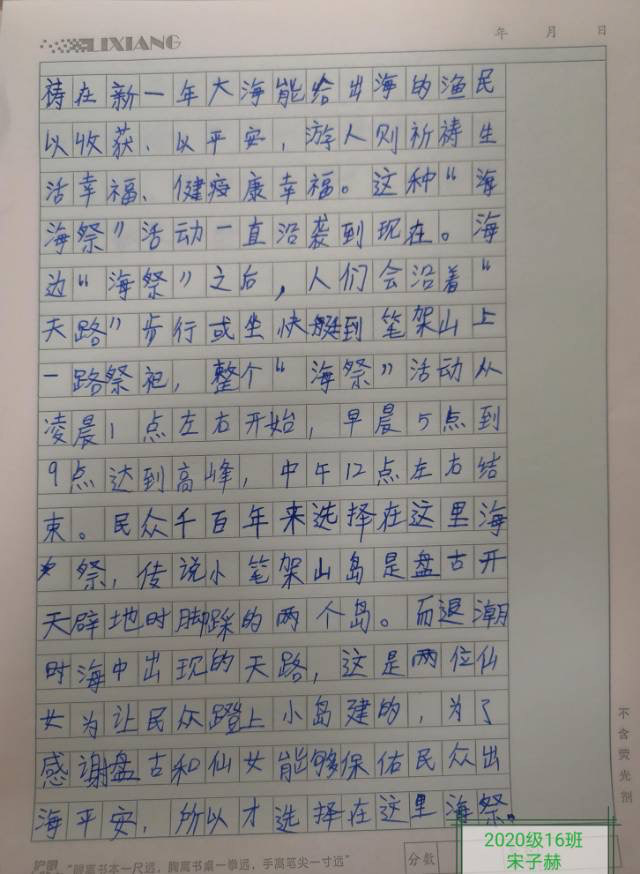 LIXIANG
年 月 日
祷在新一年大海能给出海的渔民
以收获、以平安，游人则祈祷生
活幸福、健康幸福。这种“海
海祭”活动一直沿袭到现在。海
边“海祭”之后，人们会沿着“
天路”步行或坐快艇到笔架山上
一路祭祀，整个“海祭”活动从
凌晨1点左右开始，早晨5点到
9点达到高峰，中午12点左右结
束。民众千百年来选择在这里海
祭，传说小笔架山岛是盘古开
天辟地时脚踩的两个岛。而退潮
时海中出现的天路，这是两位仙
女为让民众蹬上小岛建的，为了
感谢盘古和仙女能够保佑民众出
海平安，所以才选择在这里海祭。
不含荧光剂
护眼 “眼离书本一尺远，胸离书桌一拳远，手离笔尖一寸远”
分数
2020级16班
宋子赫